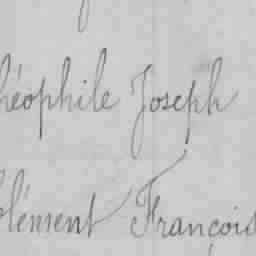 héophile Joseph
lément François